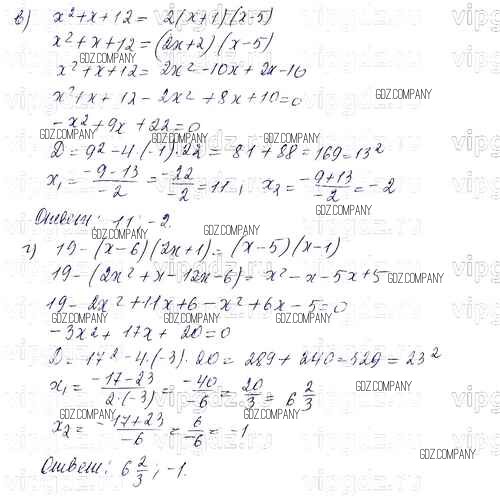 в) x² + x + 12 = 2(x+1)(x-5)
x² + x + 12 = (2x+2)(x-5)
x² + x + 12 = 2x² - 10x + 2x - 10
x² + x + 12 - 2x² + 8x + 10 = 0
-x² + 9x + 22 = 0
D = 9² - 4·(-1)·22 = 81 + 88 = 169 = 13²
x₁ = (-9-13)/(-2) = (-22)/(-2) = 11; x₂ = (-9+13)/(-2) = -2
Ответ: 11; -2.
г) 19 - (x-6)(2x+1) = (x-5)(x-1)
19 - (2x² + x - 12x - 6) = x² - x - 5x + 5
19 - 2x² + 11x + 6 - x² + 6x - 5 = 0
-3x² + 17x + 20 = 0
D = 17² - 4·(-3)·20 = 289 + 240 = 529 = 23²
x₁ = (-17-23)/(2·(-3)) = (-40)/(-6) = 20/3 = 6 2/3
x₂ = (-17+23)/(-6) = 6/(-6) = -1
Ответ: 6 2/3; -1.